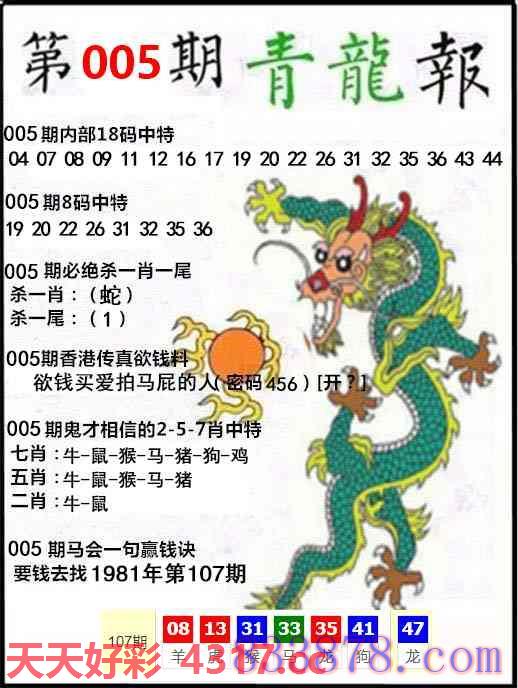 第005期 青龍報
005期内部18码中特
04 07 08 09 11 12 16 17 19 20 22 26 31 32 35 36 43 44
005期8码中特
19 20 22 26 31 32 35 36
005 期必绝杀一肖一尾
杀一肖：（蛇）
杀一尾：（1）
005期香港传真欲钱料
欲钱买爱拍马屁的人(密码456)[开？]
005期鬼才相信的2-5-7肖中特
七肖:牛-鼠-猴-马-猪-狗-鸡
五肖:牛-鼠-猴-马-猪
二肖:牛-鼠
005 期马会一句赢钱诀
要钱去找1981年第107期
107期 08 13 31 33 35 41 47
羊 虎 猴 马 龙 狗 龙
天天好彩 4317.cc
78.com